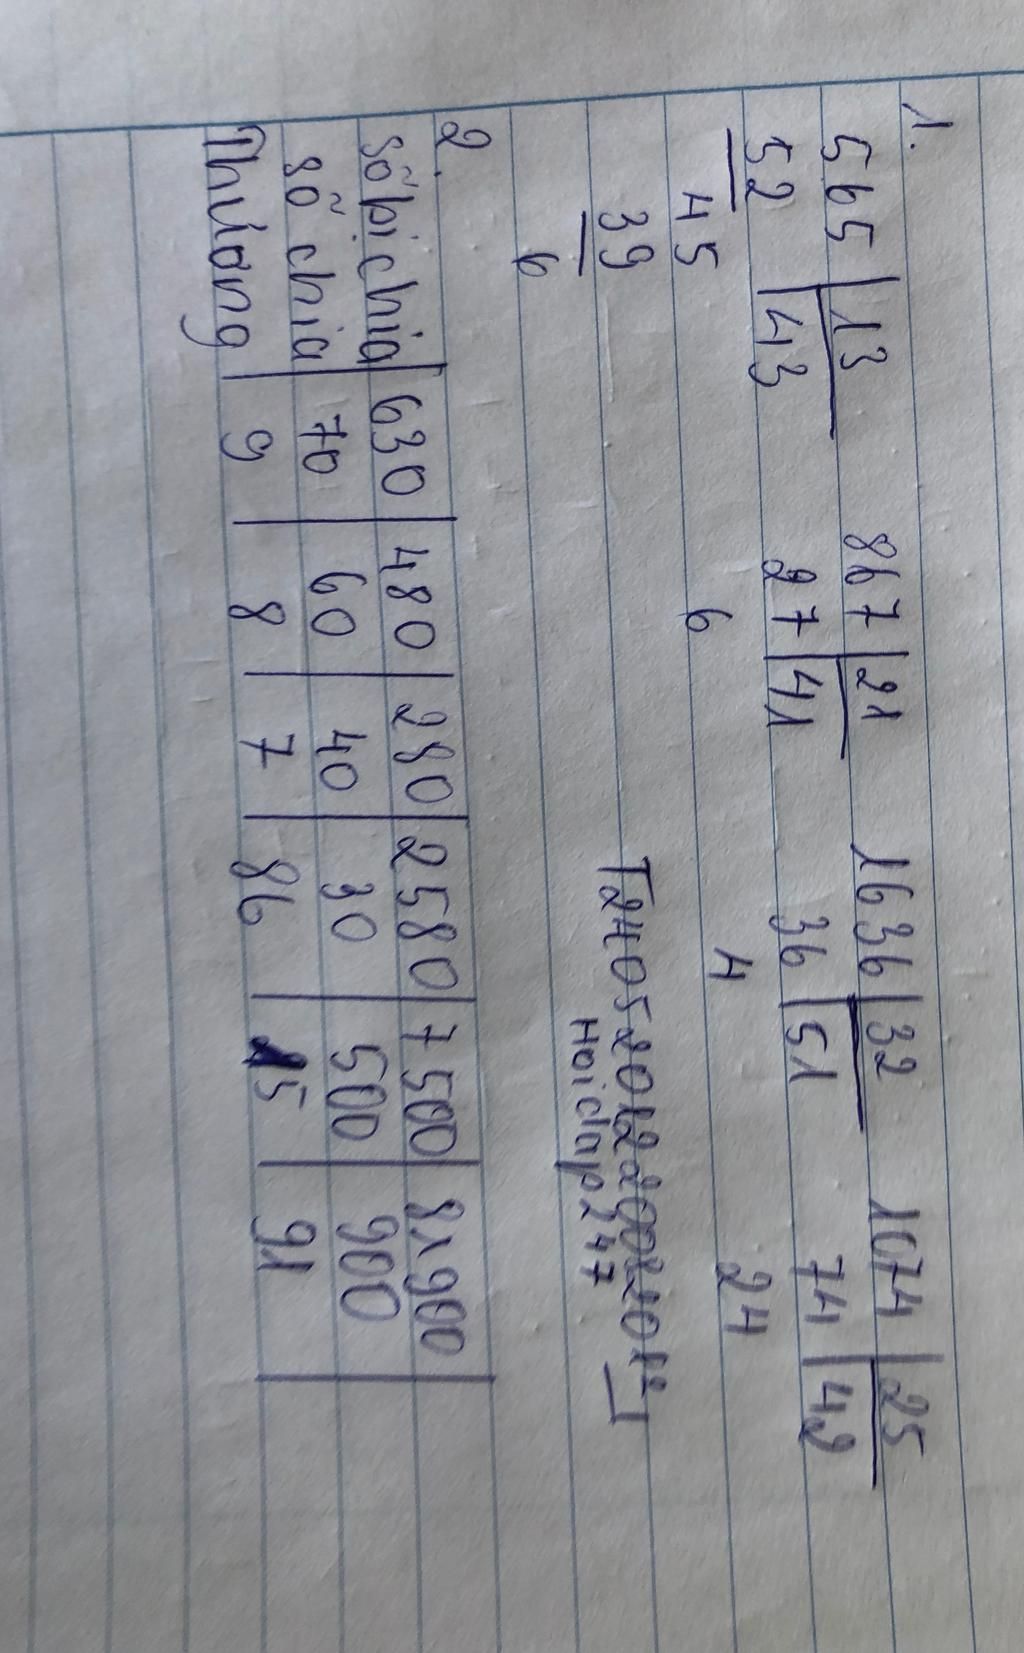 1.
565 | 13   867 | 21   1636 | 32   1074 | 25
52 | 43   27 | 41   36 | 51   74 | 42
45   6   4   24
39
6
T2405201220022012
Hoidap247
2.
Số bị chia | 630 | 480 | 280 | 2580 | 7500 | 81900
số chia | 70 | 60 | 40 | 30 | 500 | 900
Thương | 9 | 8 | 7 | 86 | 15 | 91